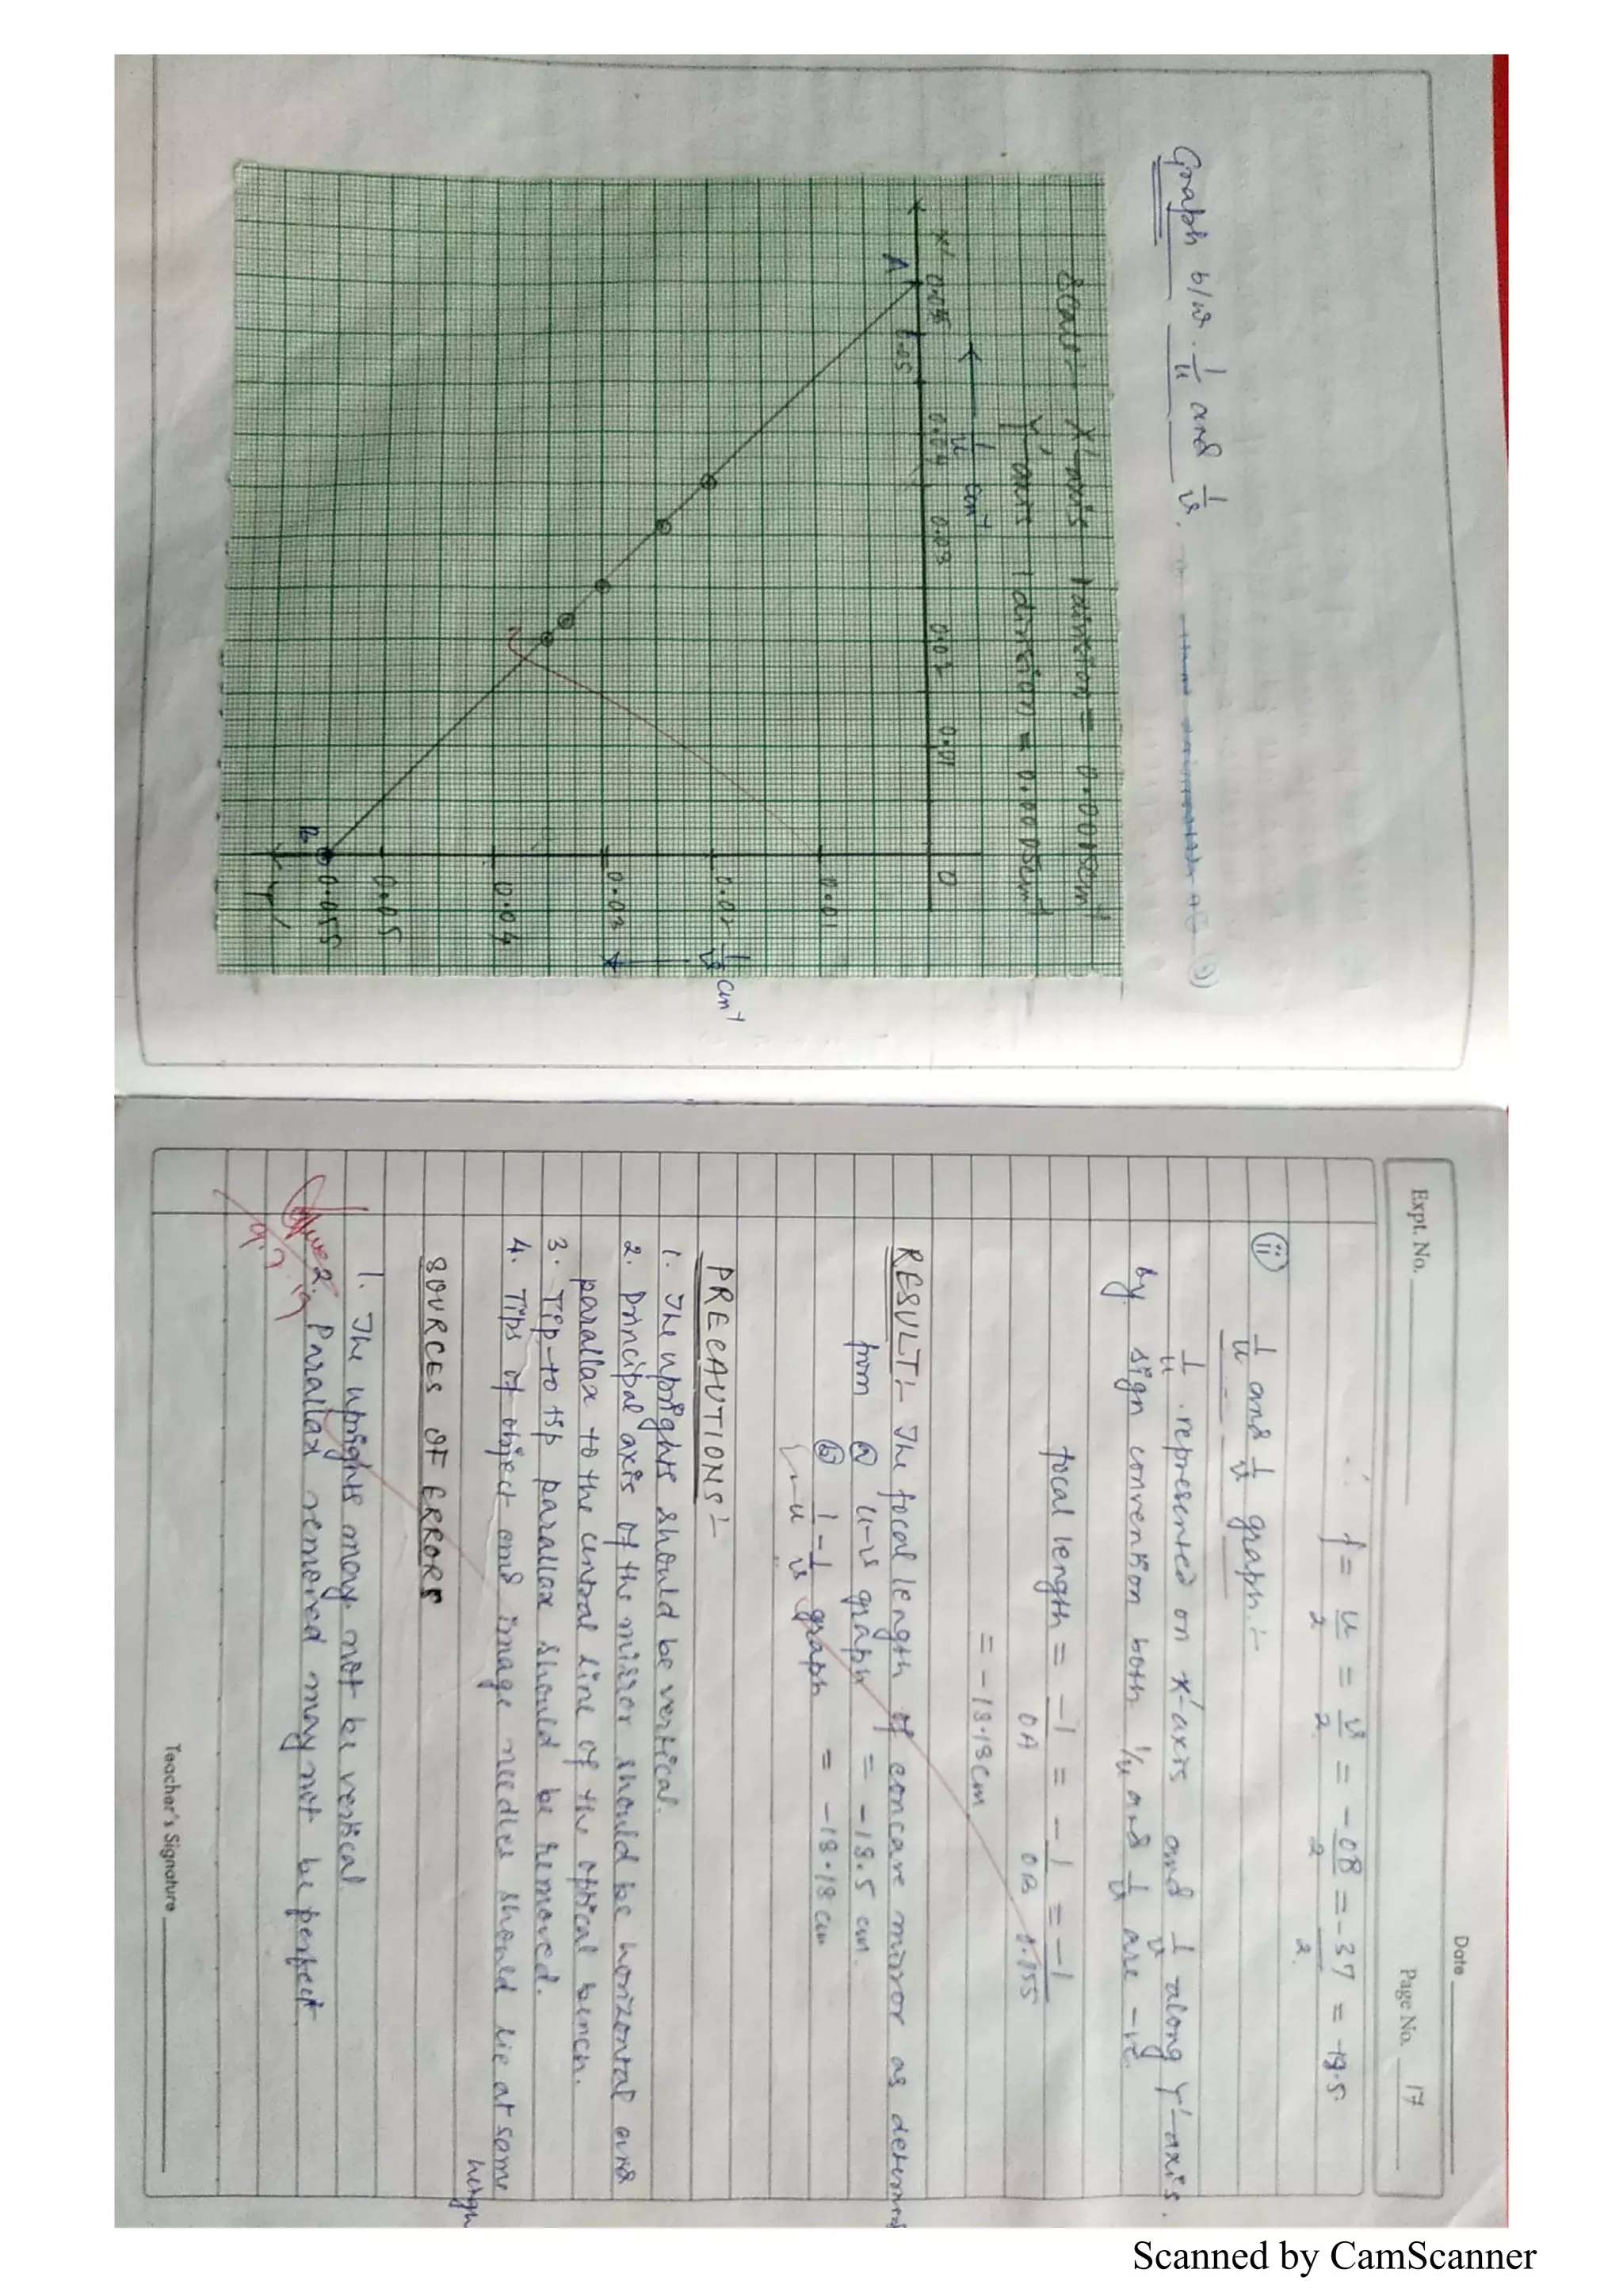 Graph b/w 1/u and 1/v.
Scale:- X' axis 1 division = 0.001 cm⁻¹
Y' axis 1 division = 0.0005 cm⁻¹
← 1/u cm⁻¹
X' 0.055 0.05 0.04 0.03 0.02 0.01 0
A
0.01
0.02 1/v cm⁻¹
0.03
0.04
0.05
B 0.055
Y'
Date
Expt. No.
Page No. 17
∴ f = u/2 = v/2 = -OB/2 = -37/2 = -18.5
(ii) 1/u and 1/v graph:-
1/u represented on x'-axis and 1/v along Y'-axis.
by sign convention both 1/u and 1/v are -ve.
focal length = -1/OA = -1/OB = -1/0.055
= -18.18 cm
RESULT:- The focal length of concave mirror as determined
from (a) u-v graph = -18.5 cm.
(b) 1/u - 1/v graph = -18.18 cm
PRECAUTIONS:-
1. The uprights should be vertical.
2. Principal axis of the mirror should be horizontal and
parallax to the central line of the optical bench.
3. Tip-to tip parallax should be removed.
4. Tips of object and image needles should lie at same
heigh
SOURCES OF ERRORS
1. The uprights may not be vertical
2. Parallax removed may not be perfect.
Teacher's Signature
Scanned by CamScanner